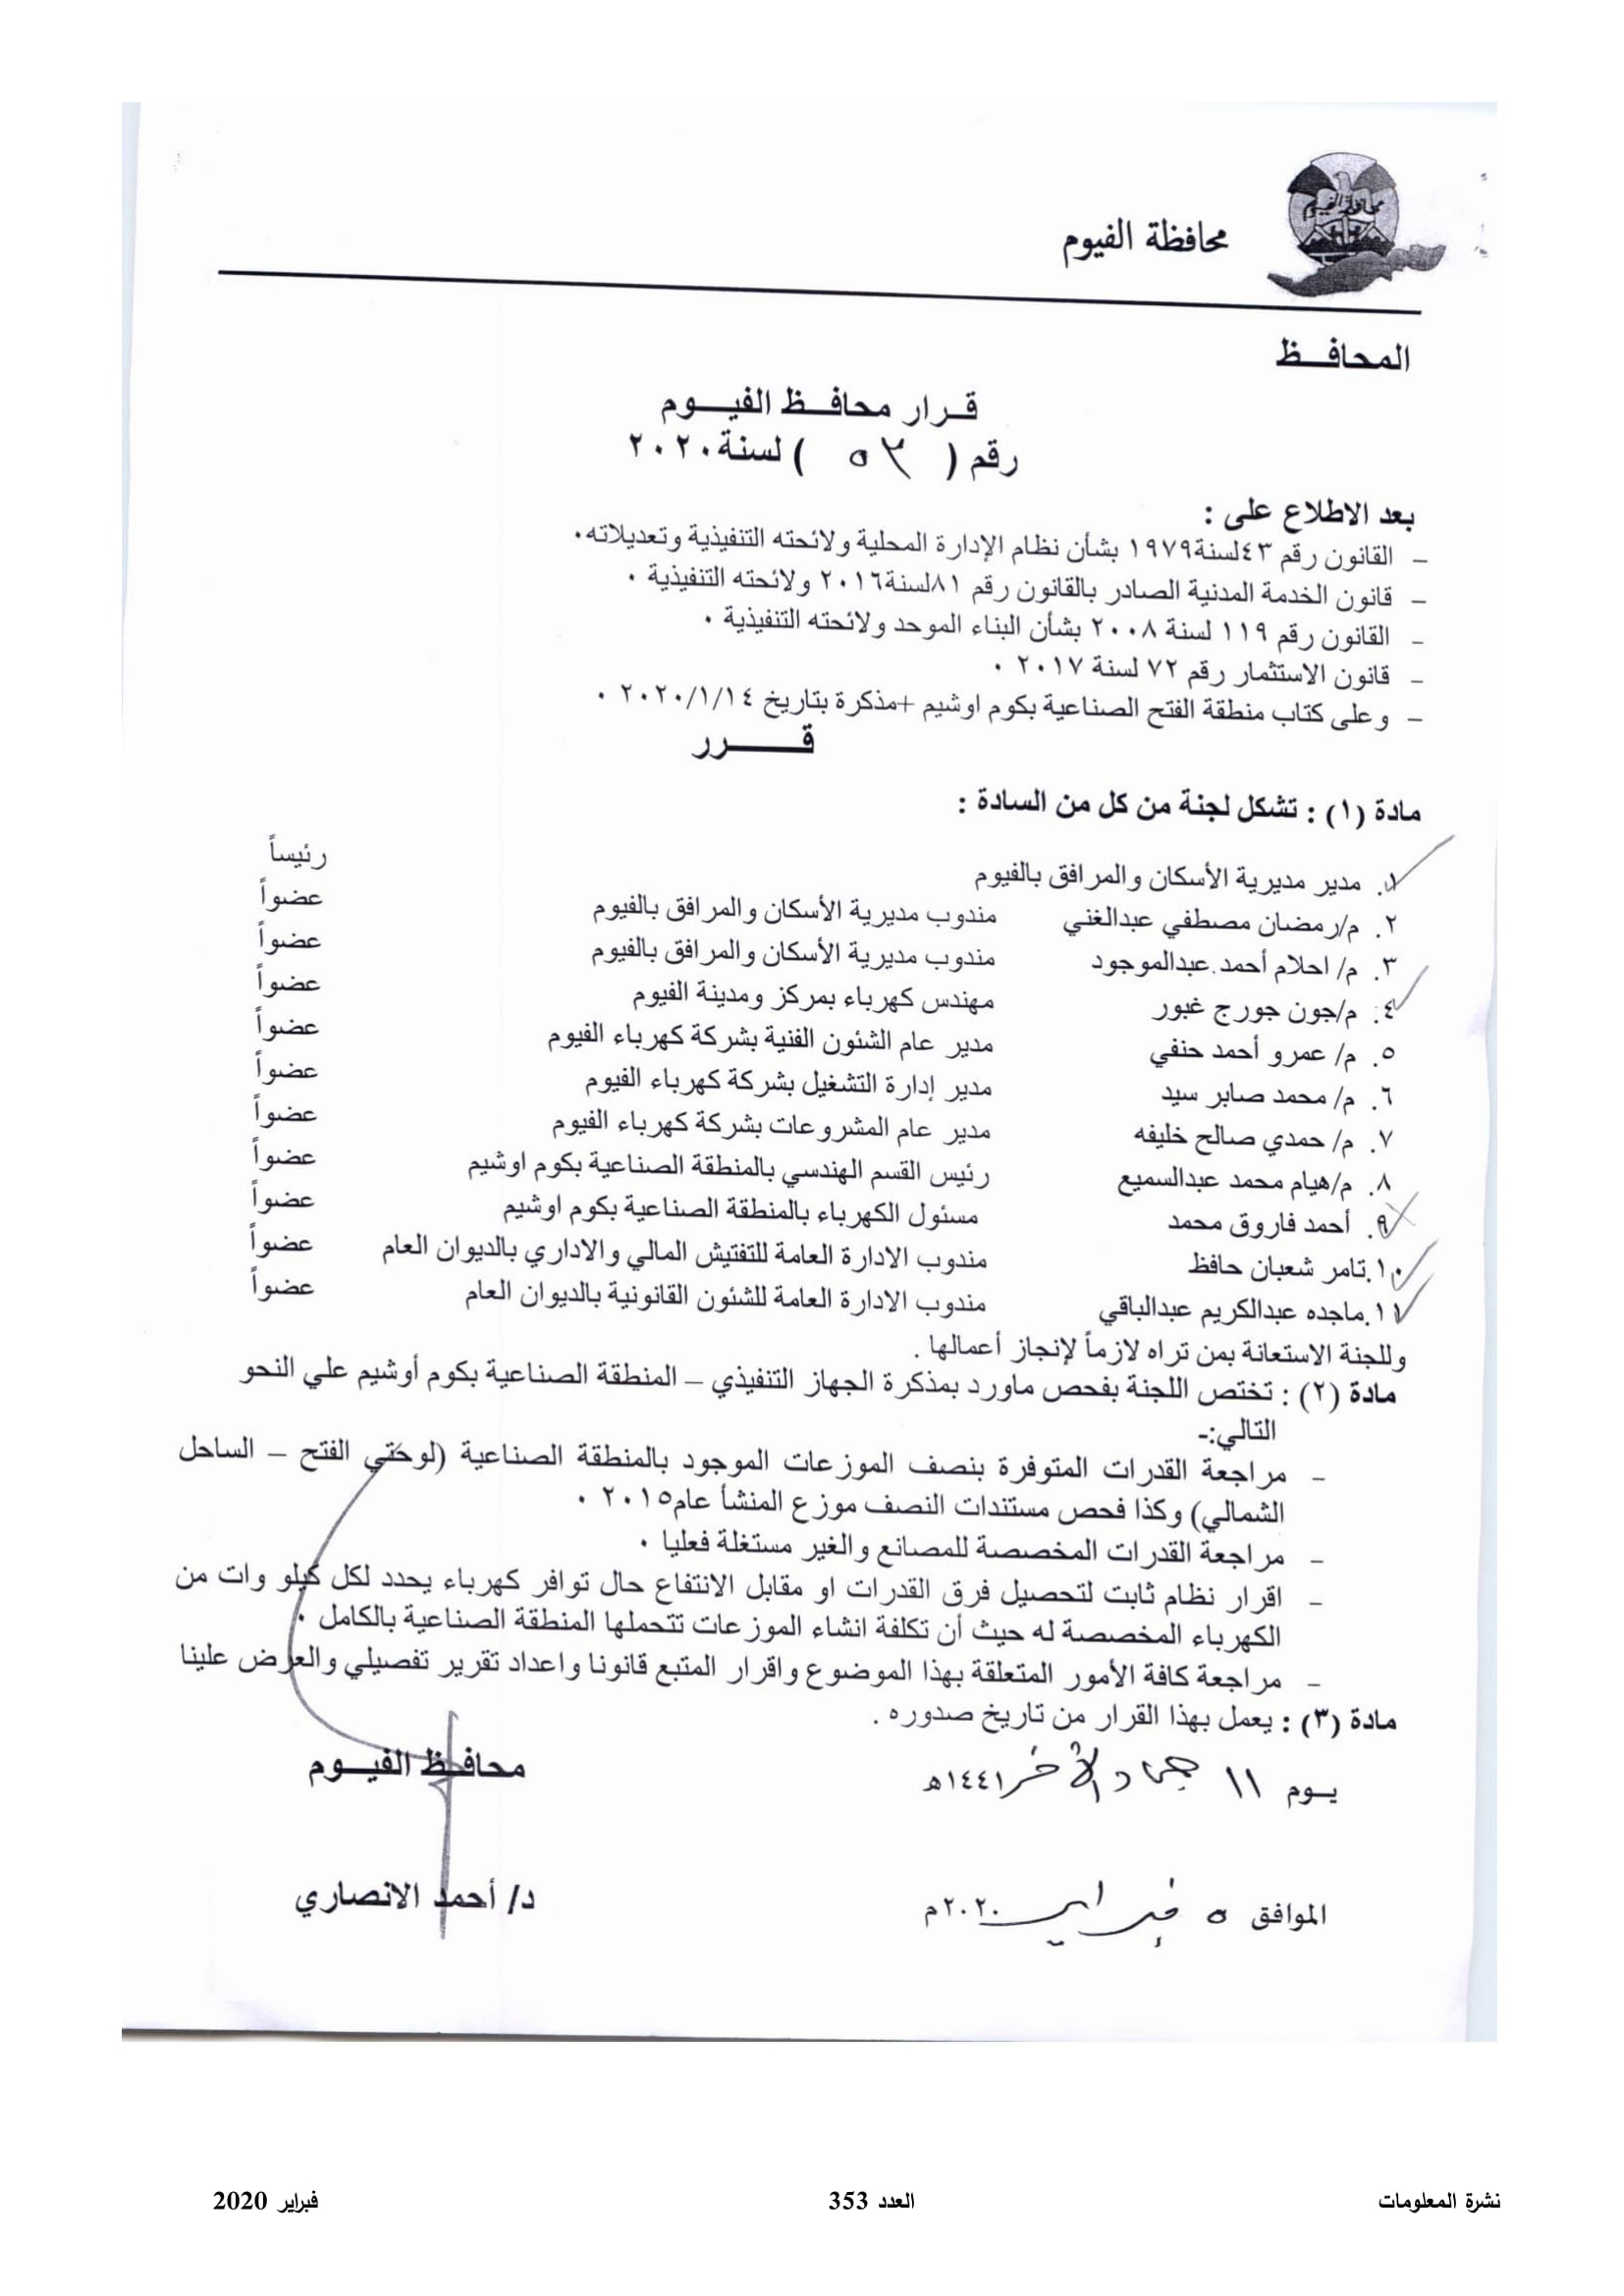 محافظة الفيوم
محافظة الفيوم
المحافــظ
قــرار محافــظ الفيــوم
رقم ( ٥٢ ) لسنة٢٠٢٠
بعد الاطلاع على :
– القانون رقم ٤٣لسنة١٩٧٩ بشأن نظام الإدارة المحلية ولائحته التنفيذية وتعديلاته٠
– قانون الخدمة المدنية الصادر بالقانون رقم ٨١لسنة٢٠١٦ ولائحته التنفيذية ٠
– القانون رقم ١١٩ لسنة ٢٠٠٨ بشأن البناء الموحد ولائحته التنفيذية ٠
– قانون الاستثمار رقم ٧٢ لسنة ٢٠١٧ ٠
– وعلى كتاب منطقة الفتح الصناعية بكوم اوشيم +مذكرة بتاريخ ٢٠٢٠/١/١٤ ٠
قــــرر
مادة (١) : تشكل لجنة من كل من السادة :
١. مدير مديرية الأسكان والمرافق بالفيوم رئيساً
٢. م/رمضان مصطفي عبدالغني مندوب مديرية الأسكان والمرافق بالفيوم عضواً
٣. م/ احلام أحمد عبدالموجود مندوب مديرية الأسكان والمرافق بالفيوم عضواً
٤. م/جون جورج غبور مهندس كهرباء بمركز ومدينة الفيوم عضواً
٥. م/ عمرو أحمد حنفي مدير عام الشئون الفنية بشركة كهرباء الفيوم عضواً
٦. م/ محمد صابر سيد مدير إدارة التشغيل بشركة كهرباء الفيوم عضواً
٧. م/ حمدي صالح خليفه مدير عام المشروعات بشركة كهرباء الفيوم عضواً
٨. م/هيام محمد عبدالسميع رئيس القسم الهندسي بالمنطقة الصناعية بكوم اوشيم عضواً
٩. أحمد فاروق محمد مسئول الكهرباء بالمنطقة الصناعية بكوم اوشيم عضواً
١٠.تامر شعبان حافظ مندوب الادارة العامة للتفتيش المالي والاداري بالديوان العام عضواً
١١.ماجده عبدالكريم عبدالباقي مندوب الادارة العامة للشئون القانونية بالديوان العام عضواً
وللجنة الاستعانة بمن تراه لازماً لإنجاز أعمالها .
مادة (٢) : تختص اللجنة بفحص ماورد بمذكرة الجهاز التنفيذي – المنطقة الصناعية بكوم أوشيم علي النحو
التالي:-
– مراجعة القدرات المتوفرة بنصف الموزعات الموجود بالمنطقة الصناعية (لوحتي الفتح – الساحل
الشمالي) وكذا فحص مستندات النصف موزع المنشأ عام٢٠١٥ ٠
– مراجعة القدرات المخصصة للمصانع والغير مستغلة فعليا ٠
– اقرار نظام ثابت لتحصيل فرق القدرات او مقابل الانتفاع حال توافر كهرباء يحدد لكل كيلو وات من
الكهرباء المخصصة له حيث أن تكلفة انشاء الموزعات تتحملها المنطقة الصناعية بالكامل ٠
– مراجعة كافة الأمور المتعلقة بهذا الموضوع واقرار المتبع قانونا واعداد تقرير تفصيلي والعرض علينا
مادة (٣) : يعمل بهذا القرار من تاريخ صدوره .
محافــظ الفيــوم
يــوم ١١ جماد الآخر ١٤٤١هـ
د/ أحمد الانصاري
الموافق ٥ فبراير ٢٠٢٠م
نشرة المعلومات العدد 353 فبراير 2020